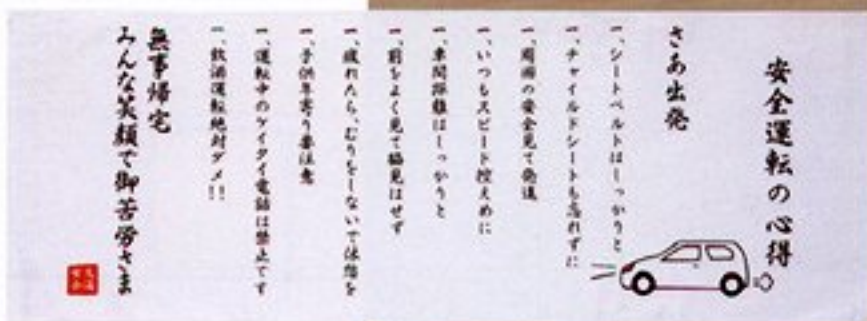 安全運転の心得
さあ出発
一、シートベルトはしっかりと
一、チャイルドシートも忘れずに
一、周囲の安全見て発進
一、いつもスピード控えめに
一、車間距離はしっかりと
一、前をよく見て脇見はせず
一、疲れたら、むりをしないで休憩を
一、子供年寄り要注意
一、運転中のケイタイ電話は禁止です
一、飲酒運転絶対ダメ!!
無事帰宅
みんな笑顔で御苦労さま